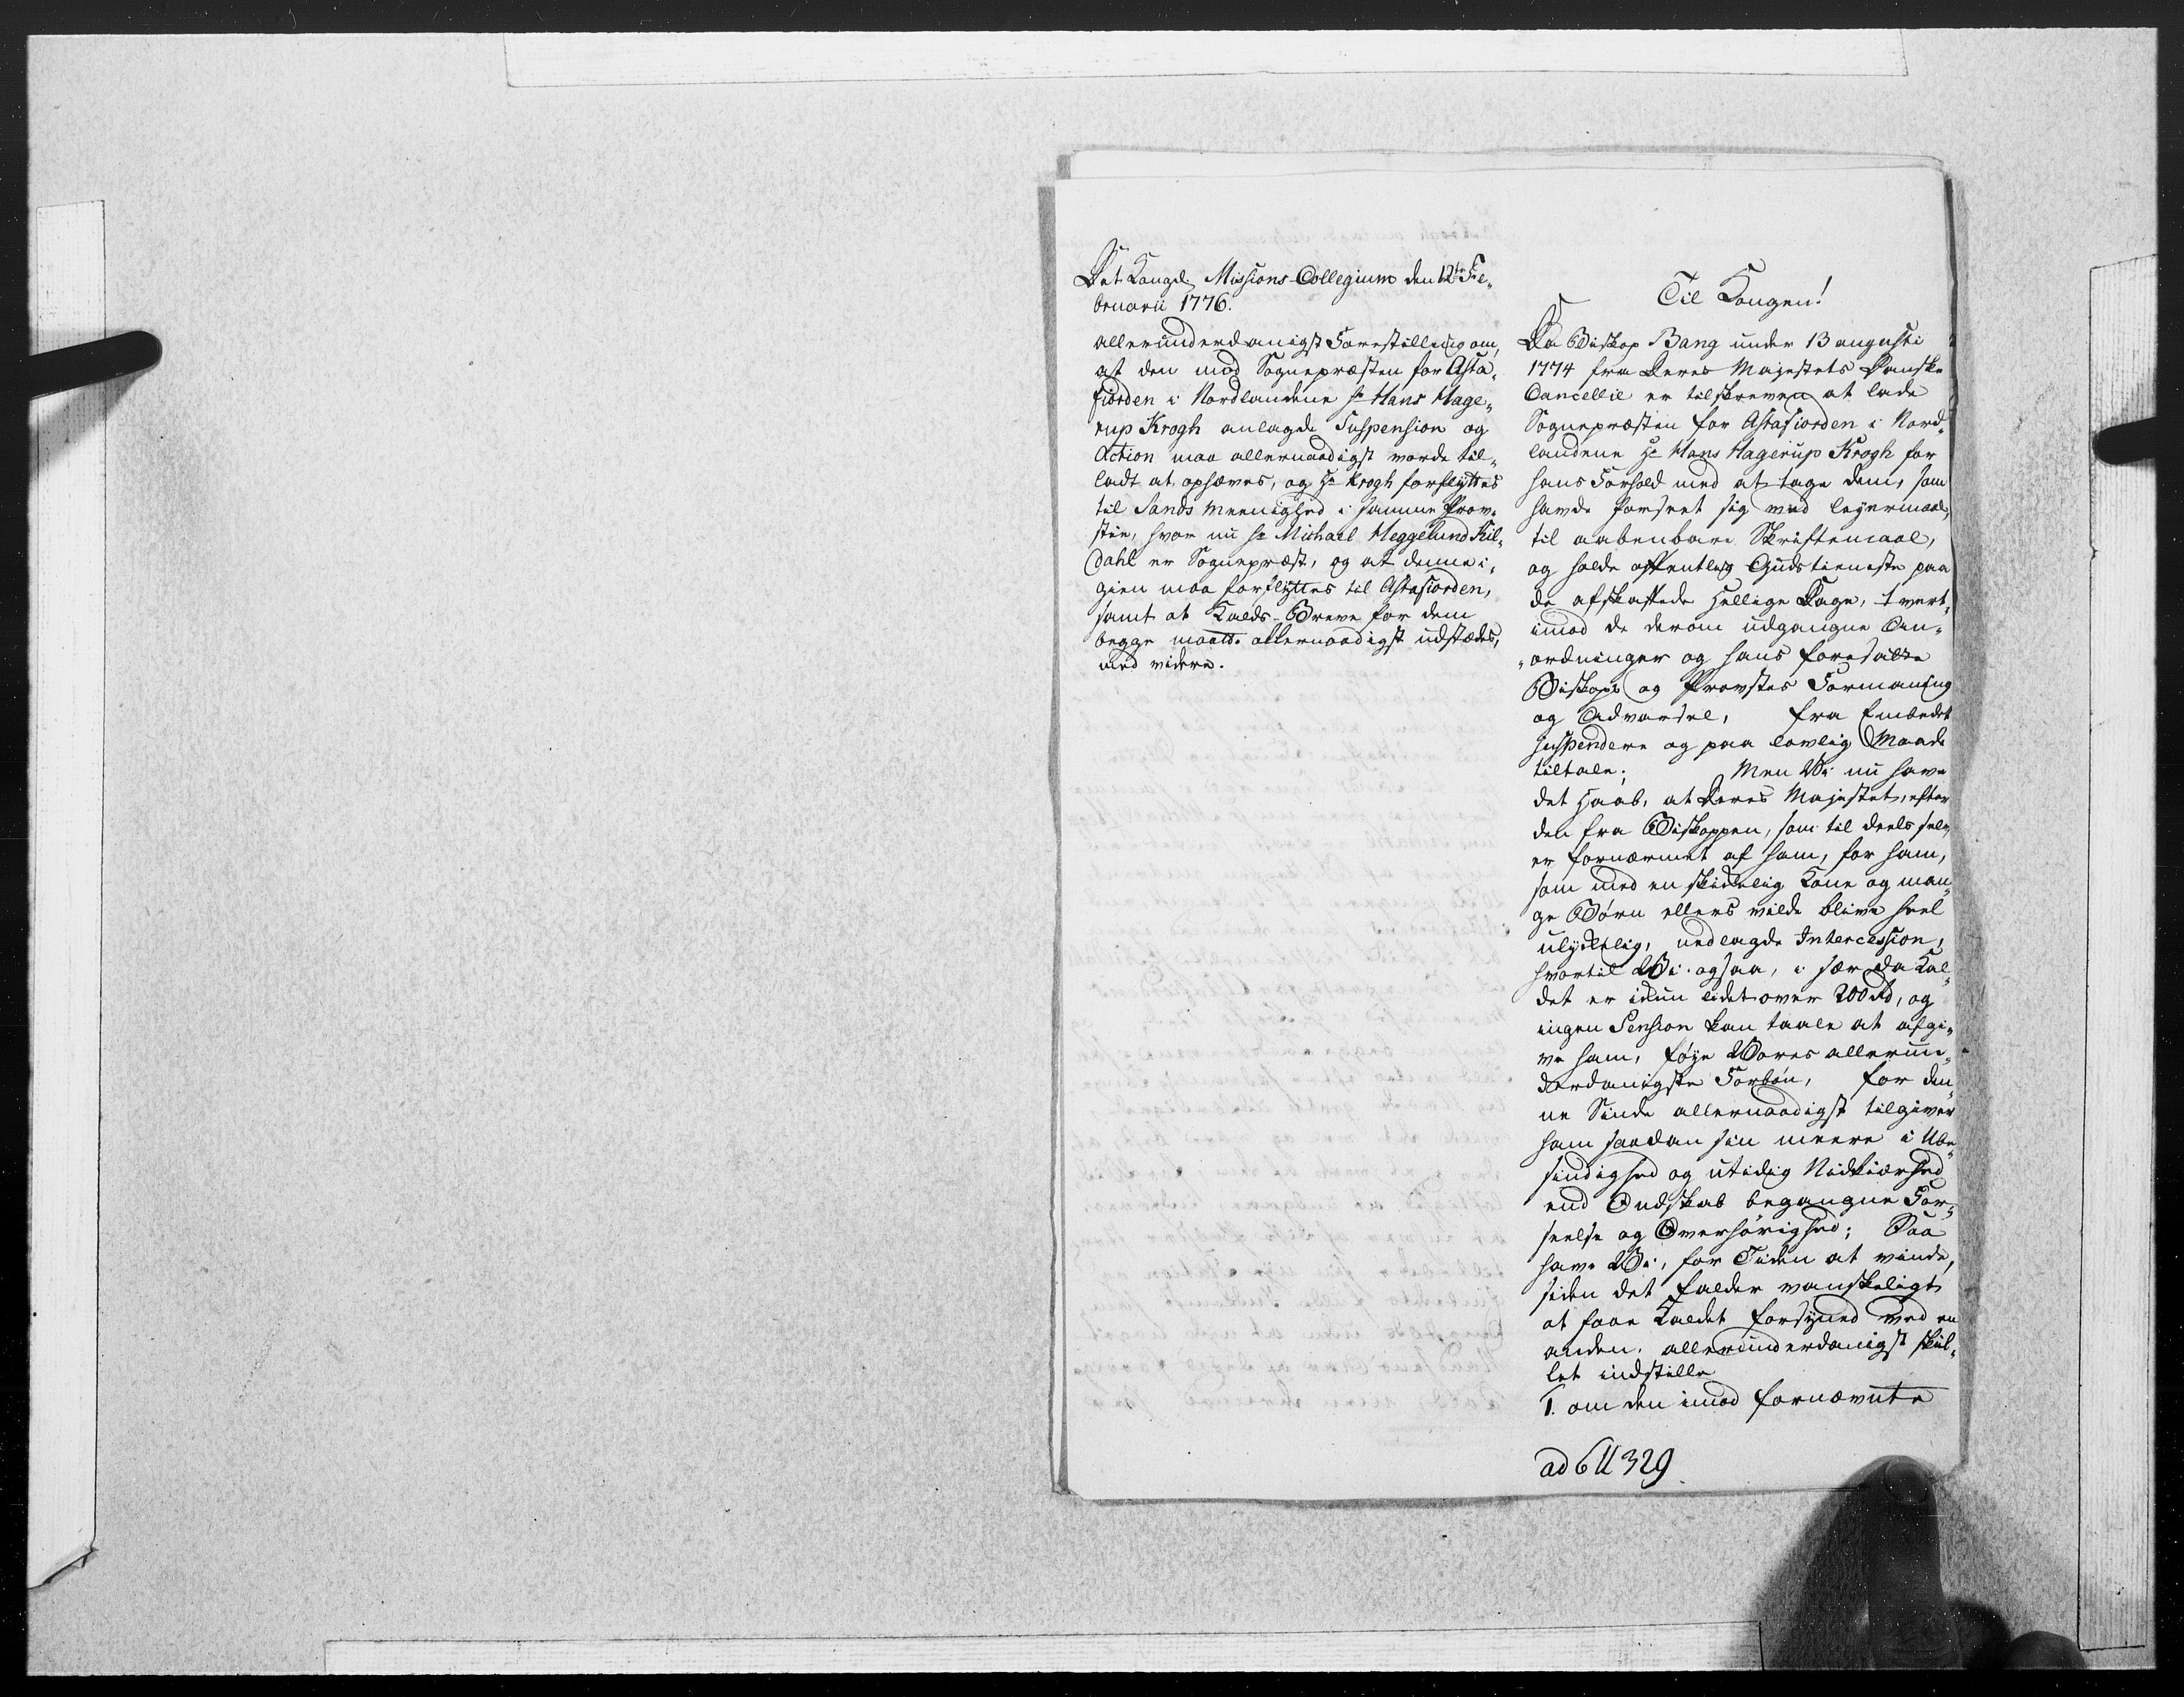 Det Kongel: Missions-Collegium den 12te Fe-
bruarii 1776.
allerunderdanigst Forestilling om,
at den mod Sognepræsten for Asta-
fiorden i Nordlandene Hr Hans Hage-
rup Krogh anlagde Suspension og
Action maa allernaadigst vorde til-
ladt at ophæves, og Hr Krogh forflyttes
til Sands Meenighed i samme Prov-
stie, hvor nu Hr Michael Heggelund Kil-
dahl er Sognepræst, og at denne i-
gien maa forflyttes til Astafiorden,
samt at Kalds-Breve for dem
begge maatte allernaadigst udstædes,
med videre.
Til Kongen!
Da Biskop Bang under 13 augusti
1774 fra Deres Majestets Danske
Cancellie er tilskreven at lade
Sognepræsten for Astafiorden i Nord-
landene Hr Hans Hagerup Krogh for
hans Forhold med at tage dem, som
havde forseet sig med leyermaal,
til aabenbare Skriftemaal,
og holde offentlig Gudstieneste paa
de afskaffede Hellige Dage, tvert-
imod de derom udgangne An-
ordninger og hans foresatte
Biskops og Provstes Formaning
og Advarsel, fra Embedet
suspendere og paa lovlig Maade
tiltale; Men Vi nu have
det Haab, at Deres Majestet, efter
den fra Biskoppen, som til deels selv
er fornærmet af ham, for ham,
som med en skikkelig Kone og man-
ge Børn ellers vilde blive heel
ulykkelig, nedlagde Intercession,
hvortil Vi ogsaa, i sær da Kal-
det er ikkun lidet over 200 Rd, og
ingen Pension kan taale at afgi-
ve ham, føye Vores allerun-
derdanigste Forbøn, for den-
ne Sinde allernaadigst tilgiver
ham saadan sin meere i Ube-
sindighed og utidig Nidkiærhed
end Ondskab begangne For-
seelse og Overhørighed; Saa
have Vi, for Tiden at vinde,
siden det falder vanskeligt
at faae Kaldet forsynet med en
anden, allerunderdanigst skul-
let indstille
1. om den imod fornævnte
ad 6 U 329